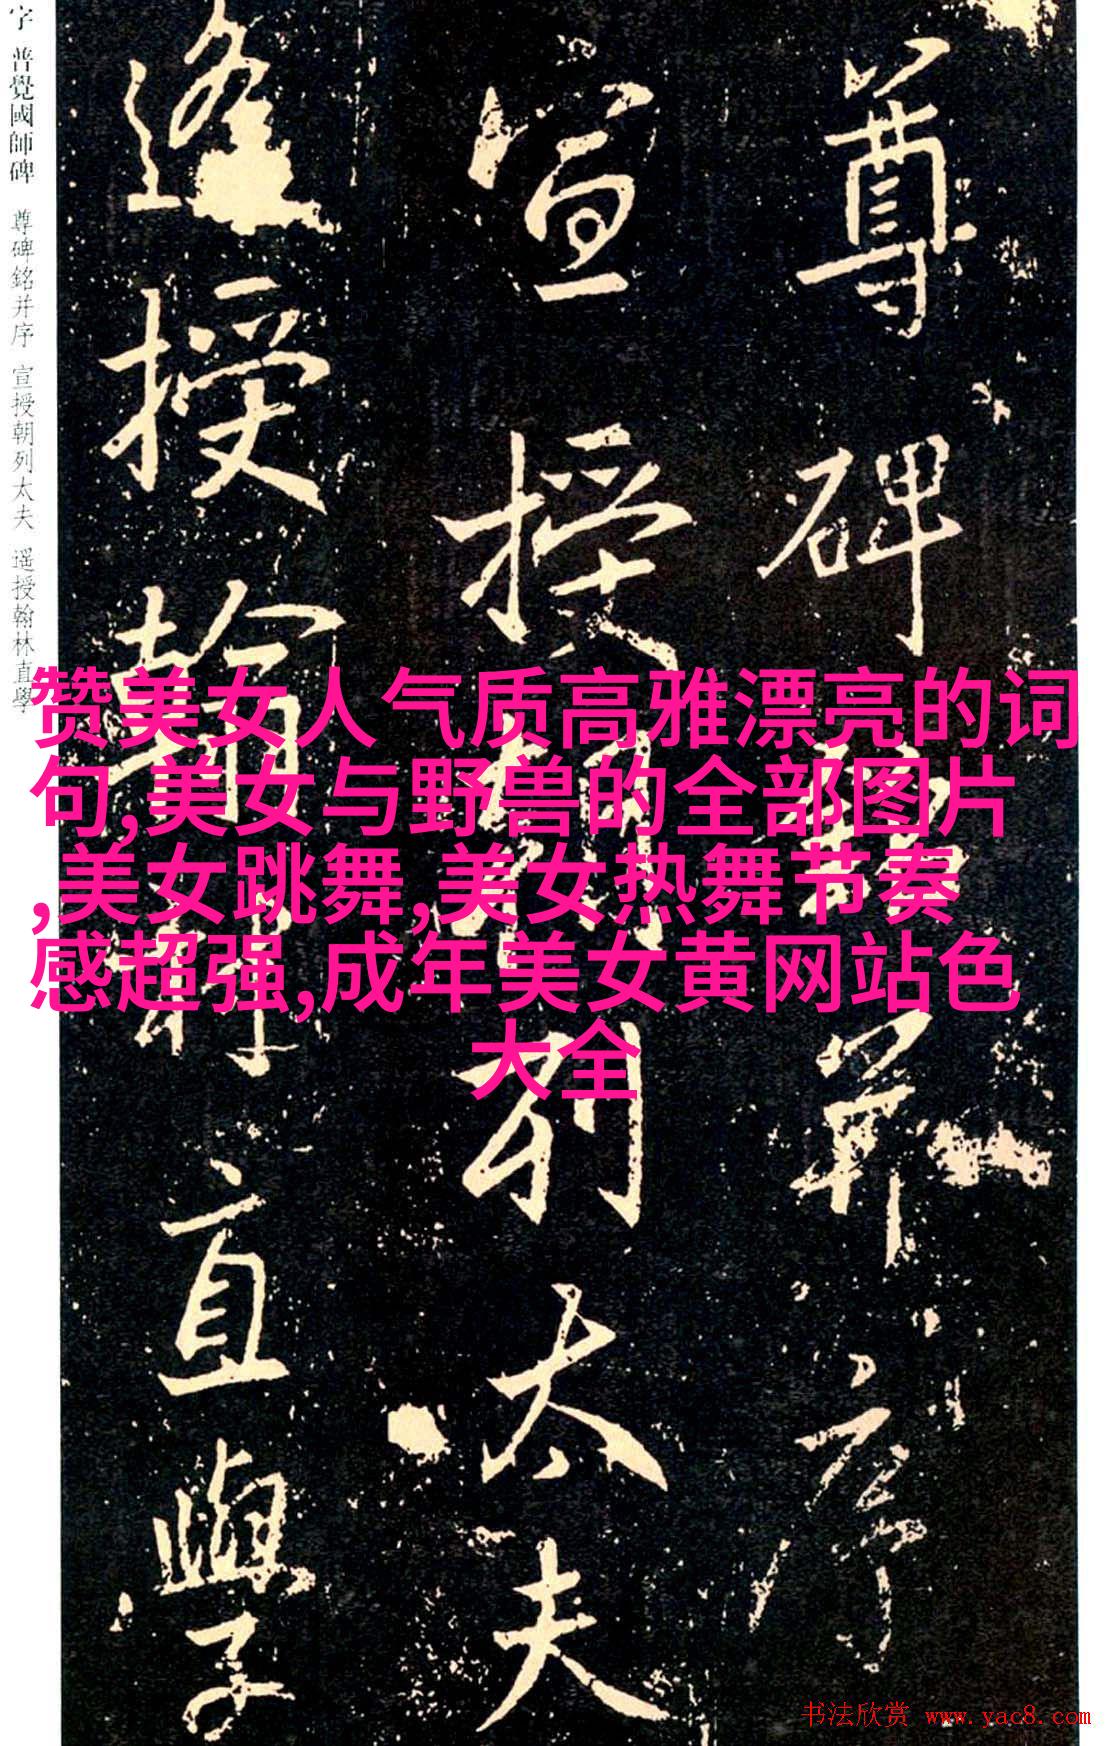 字 普覺國師碑 尊碑銘并序 宣授朝列太夫 遥授翰林直學
尊碑銘并序
宣授朝列太夫
遙授翰林直學
赞美女人气质高雅漂亮的词
句,美女与野兽的全部图片
,美女跳舞,美女热舞节奏
感超强,成年美女黄网站色
大全
书法欣赏 www.yac8.com